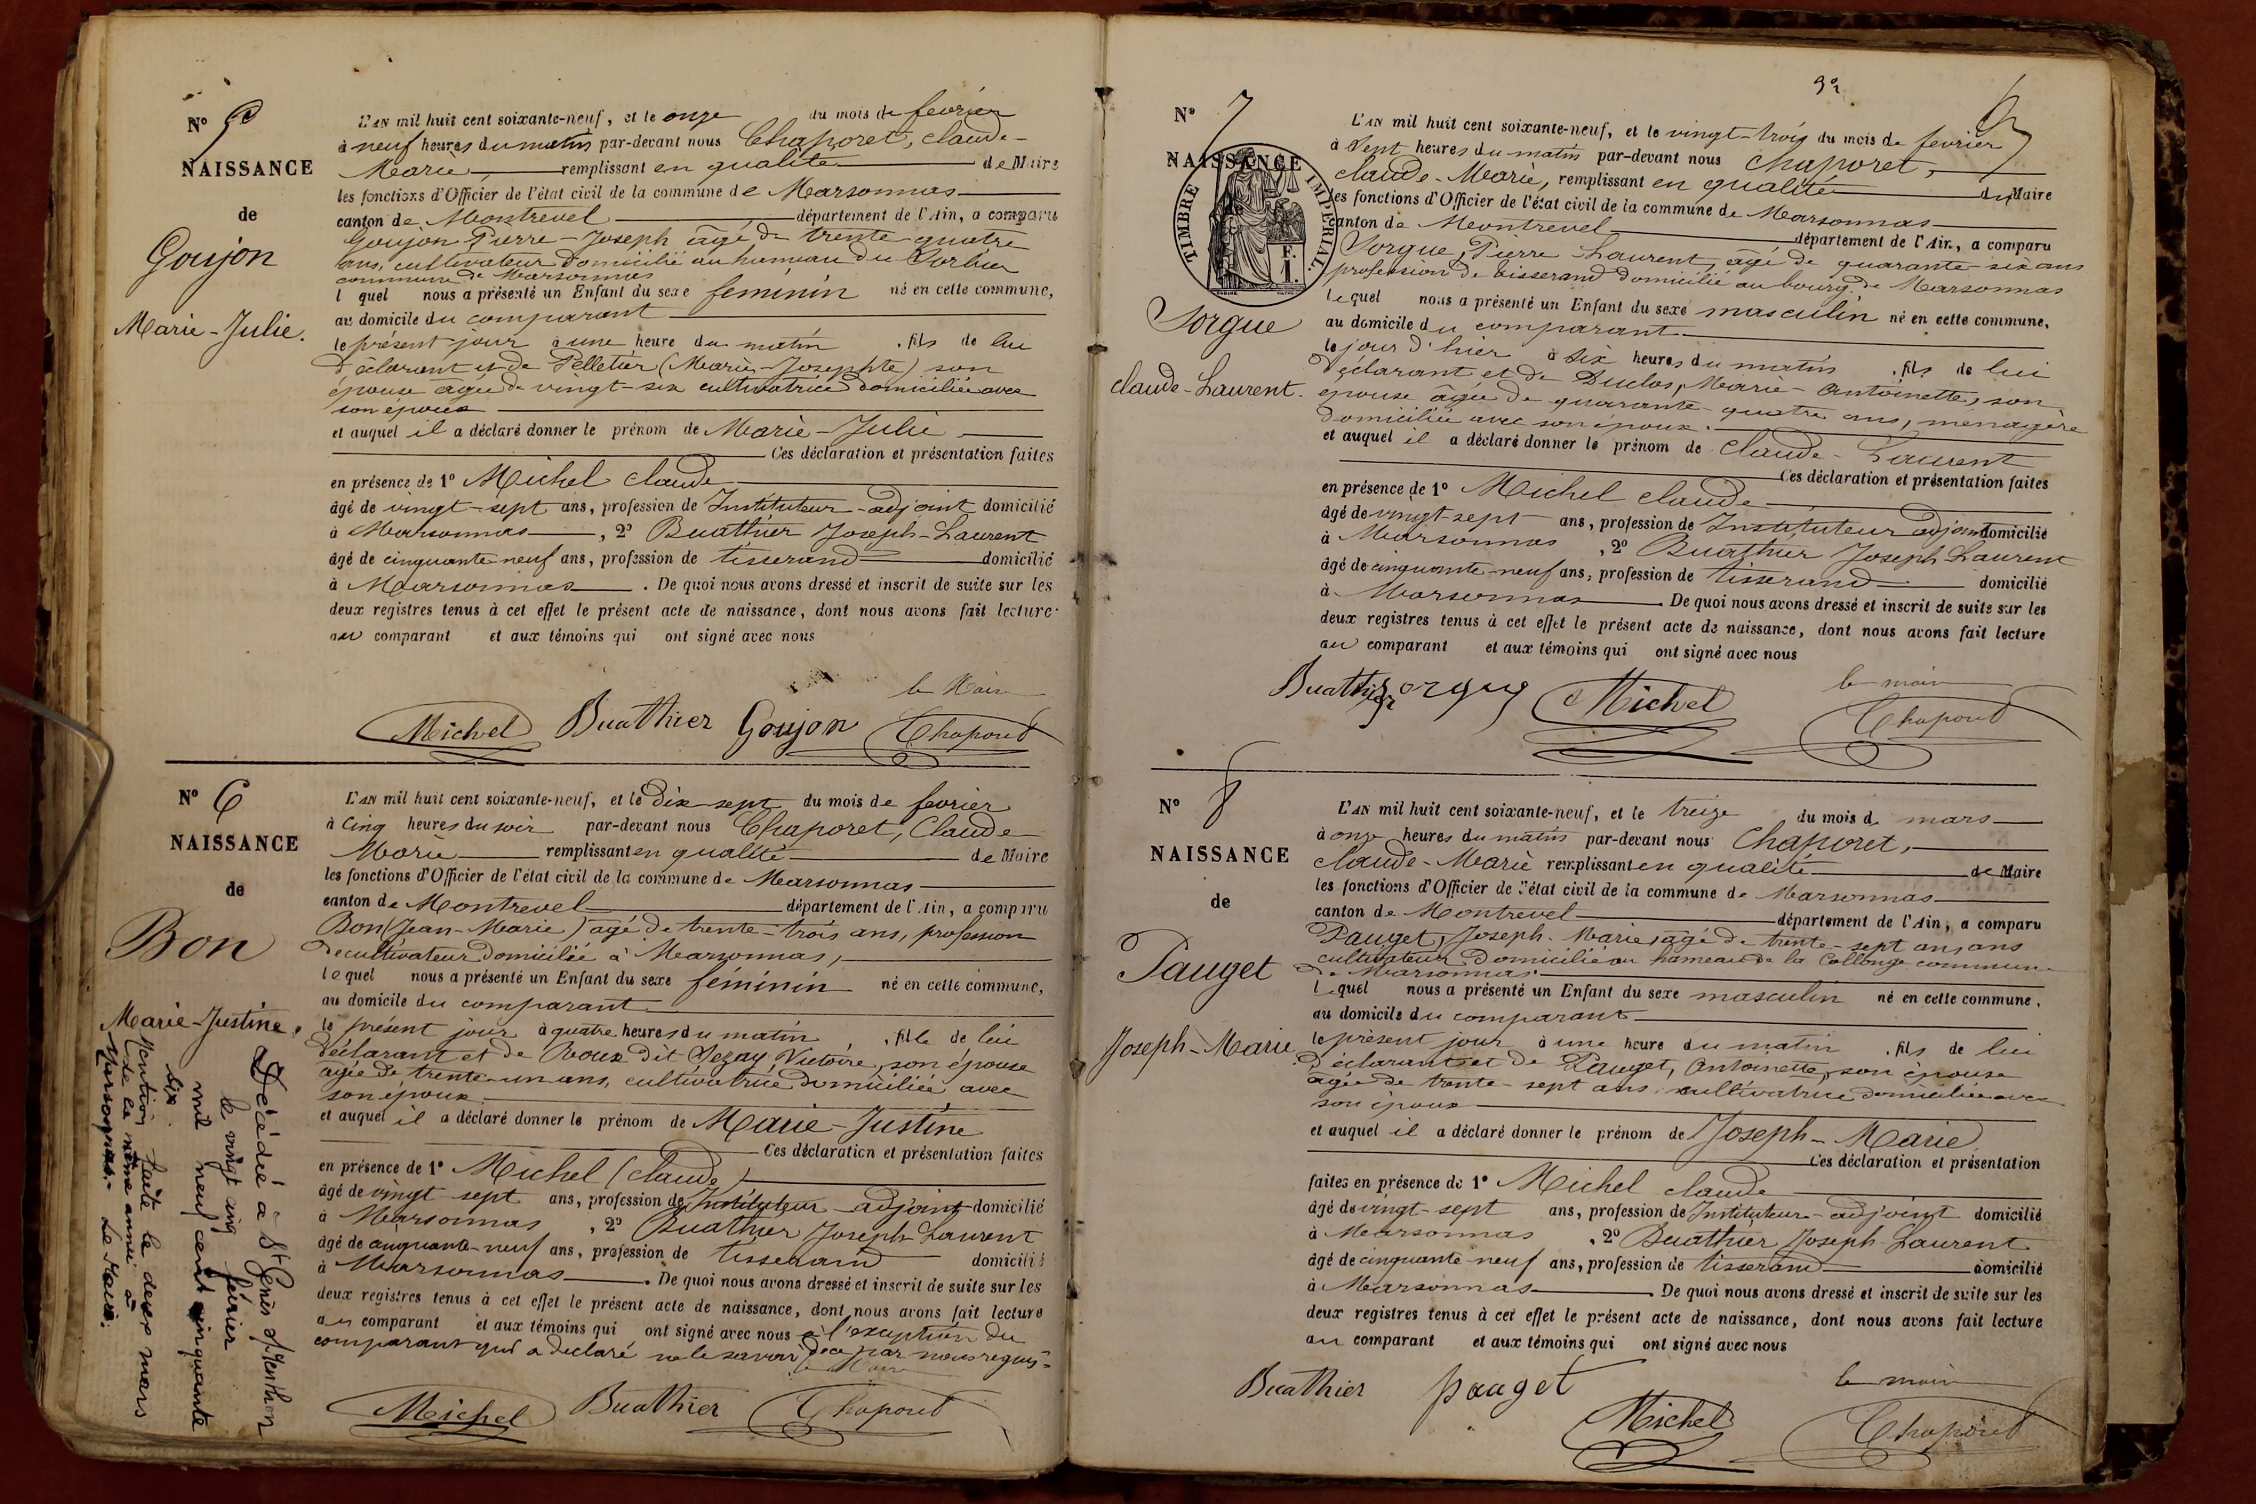 Nº 5
NAISSANCE
de
Goujon
Marie-Julie.
L'AN mil huit cent soixante-neuf, et le onze du mois de fevrier
à neuf heures du matin par-devant nous Chaporet, Claude-
Marie, remplissant en qualité de Maire
les fonctions d'Officier de l'état civil de la commune de Marsonnas
canton de Montrevel département de l'Ain, a comparu
Goujon Pierre-Joseph âgé de trente quatre
ans, cultivateur domicilié au hameau du Sorbier
commune de Marsonnas
l quel nous a présenté un Enfant du sexe féminin né en cette commune,
au domicile du comparant
le présent jour à une heure du matin , fils de lui
déclarant et de Pelletier (Marie-Josephte) son
épouse âgée de vingt-six cultivatrice domiciliée avec
son époux
et auquel il a déclaré donner le prénom de Marie-Julie
Ces déclaration et présentation faites
en présence de 1º Michel Claude
âgé de vingt-sept ans, profession de Instituteur-adjoint domicilié
à Marsonnas , 2º Buathier Joseph-Laurent
âgé de cinquante neuf ans, profession de tisserand domicilié
à Marsonnas . De quoi nous avons dressé et inscrit de suite sur les
deux registres tenus à cet effet le présent acte de naissance, dont nous avons fait lecture
au comparant et aux témoins qui ont signé avec nous
le Maire
Michel Buathier Goujon Chaporet
Nº 6
NAISSANCE
de
Bon
Marie-Justine.
Décédée à St Genis s/Menthon
le vingt cinq février
mil neuf cent cinquante
six.
Mention faite le deux mars
de la même année à
Marsonnas.- Le Maire:
L'AN mil huit cent soixante-neuf, et le dix sept du mois de fevrier
à cinq heures du soir par-devant nous Chaporet, Claude
Marie remplissant en qualité de Maire
les fonctions d'Officier de l'état civil de la commune de Marsonnas
canton de Montrevel département de l'Ain, a comparu
Bon (Jean-Marie) âgé de trente-trois ans, profession
de cultivateur domiciliée à Marsonnas,
lequel nous a présenté un Enfant du sexe féminin né en cette commune,
au domicile du comparant
le présent jour à quatre heures du matin , fille de lui
déclarant et de Roux dit Victoire, son épouse
âgée de trente-un ans, cultivatrice domiciliée avec
son époux
et auquel il a déclaré donner le prénom de Marie-Justine
Ces déclaration et présentation faites
en présence de 1º Michel (Claude)
âgé de vingt sept ans, profession de Instituteur-adjoint domicilié
à Marsonnas , 2º Buathier Joseph-Laurent
âgé de cinquante-neuf ans, profession de tisserand domicilié
à Marsonnas . De quoi nous avons dressé et inscrit de suite sur les
deux registres tenus à cet effet le présent acte de naissance, dont nous avons fait lecture
au comparant et aux témoins qui ont signé avec nous à l'exception du
comparant qui a déclaré ne le savoir de ce par nous requis-
le Maire
Michel Buathier Chaporet
Nº 7
NAISSANCE
TIMBRE IMPERIAL.
1 F.
Sorgue
Claude-Laurent.
L'AN mil huit cent soixante-neuf, et le vingt-trois du mois de fevrier
à sept heures du matin par-devant nous Chaporet,
Claude-Marie, remplissant en qualité du Maire
les fonctions d'Officier de l'état civil de la commune de Marsonnas
canton de Montrevel département de l'Ain, a comparu
Sorgue, Pierre Laurent, âgé de quarante-six ans
profession de tisserand domicilié au bourg de Marsonnas
lequel nous a présenté un Enfant du sexe masculin né en cette commune,
au domicile du comparant
le jour d'hier à six heures du matin , fils de lui
déclarant et de Duclos, Marie-Antoinette, son
épouse âgée de quarante-quatre ans, ménagère
domiciliée avec son époux.
et auquel il a déclaré donner le prénom de Claude-Laurent
Ces déclaration et présentation faites
en présence de 1º Michel Claude
âgé de vingt-sept ans, profession de Instituteur adjoint domicilié
à Marsonnas , 2º Buathier Joseph Laurent
âgé de cinquante-neuf ans, profession de tisserand domicilié
à Marsonnas . De quoi nous avons dressé et inscrit de suite sur les
deux registres tenus à cet effet le présent acte de naissance, dont nous avons fait lecture
au comparant et aux témoins qui ont signé avec nous
le maire
Buathier Sorgue Michel Chaporet
Nº 8
NAISSANCE
de
Pauget
Joseph-Marie
L'AN mil huit cent soixante-neuf, et le treize du mois de mars
à onze heures du matin par-devant nous Chaporet,
Claude-Marie remplissant en qualité de Maire
les fonctions d'Officier de l'état civil de la commune de Marsonnas
canton de Montrevel département de l'Ain, a comparu
Pauget, Joseph-Marie, âgé de trente-sept ans, ans
cultivateur domicilié au hameau de la Collonge commune
de Marsonnas.
lequel nous a présenté un Enfant du sexe masculin né en cette commune,
au domicile du comparant
le présent jour à une heure du matin , fils de lui
déclarant et de Pauget, Antoinette, son épouse
âgée de trente-sept ans cultivatrice domiciliée avec
son époux
et auquel il a déclaré donner le prénom de Joseph-Marie
Ces déclaration et présentation
faites en présence de 1º Michel Claude
âgé de vingt-sept ans, profession de Instituteur-adjoint domicilié
à Marsonnas , 2º Buathier Joseph-Laurent
âgé de cinquante neuf ans, profession de tisserand domicilié
à Marsonnas . De quoi nous avons dressé et inscrit de suite sur les
deux registres tenus à cet effet le présent acte de naissance, dont nous avons fait lecture
au comparant et aux témoins qui ont signé avec nous
le maire
Buathier pauget Michel Chaporet